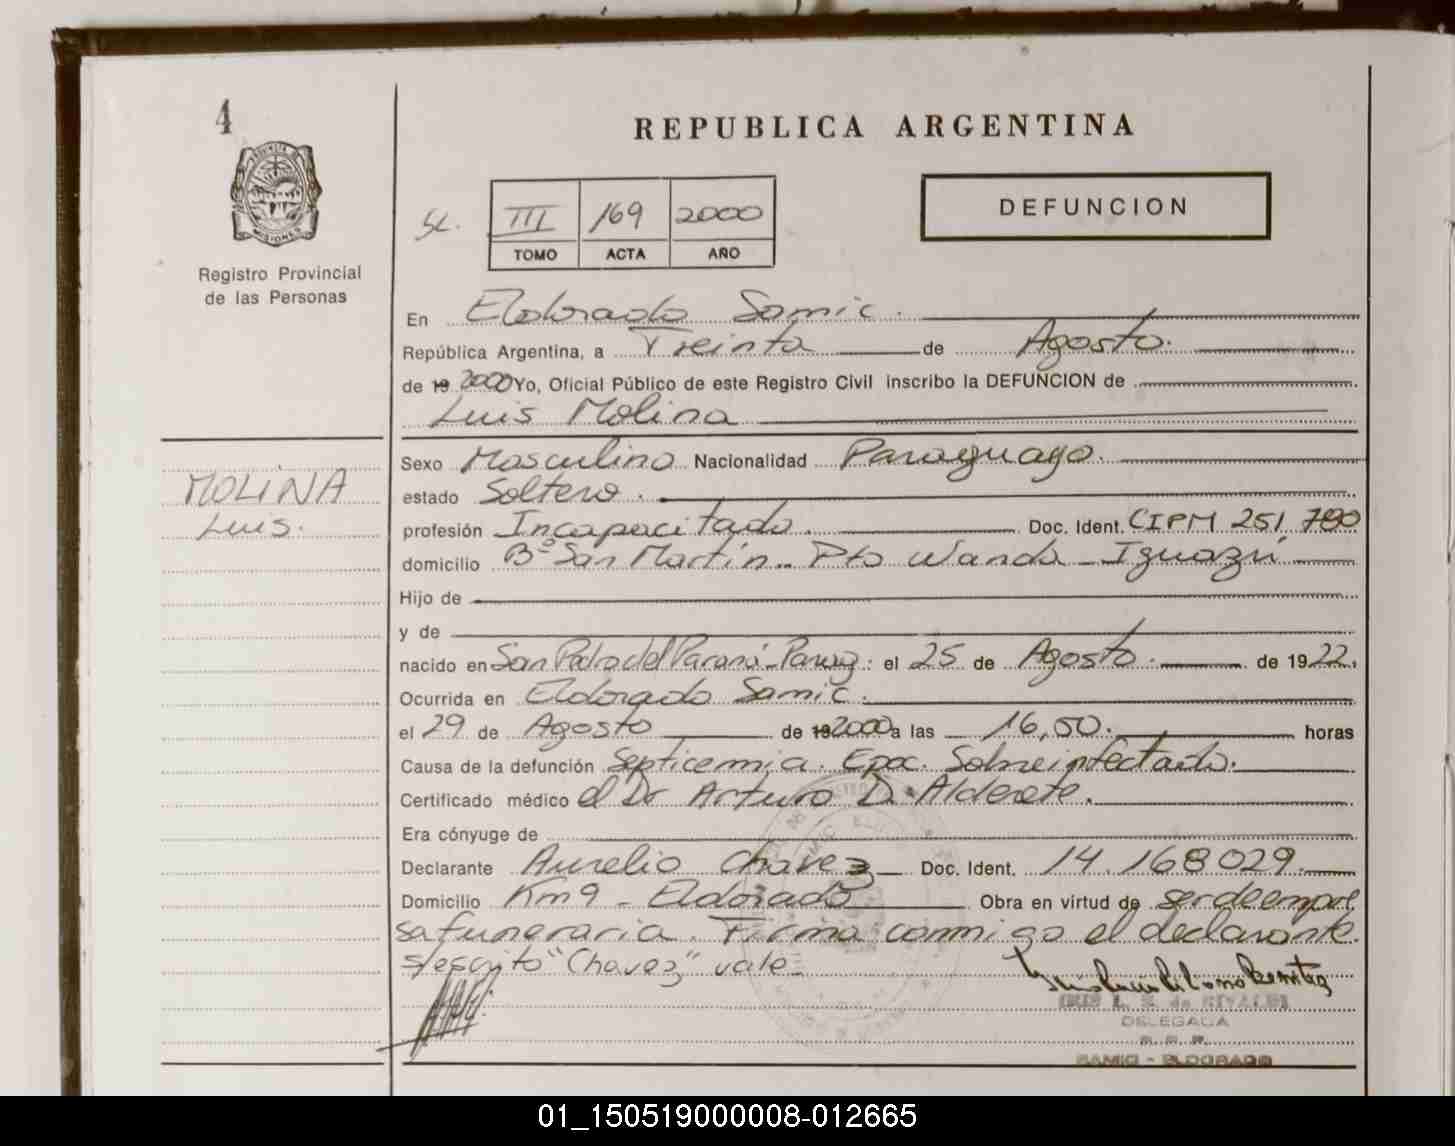 4
REPUBLICA ARGENTINA
Registro Provincial
de las Personas
III 169 2000
TOMO ACTA AÑO
DEFUNCION
En Eldorado Samic.
República Argentina, a Treinta de Agosto.
de 19 2000 Yo, Oficial Público de este Registro Civil inscribo la DEFUNCION de
Luis Molina
MOLINA
Luis.
Sexo Masculino Nacionalidad Paraguayo.
estado Soltero.
profesión Incapacitado. Doc. Ident. CIPM 251.790
domicilio Bº San Martín - Pto Wanda - Iguazú
Hijo de
y de
nacido en San Pedro del Paraná - Parag. el 25 de Agosto. de 1922.
Ocurrida en Eldorado Samic.
el 29 de Agosto de 19 2000 a las 16,50. horas
Causa de la defunción Septicemia. Epoc. Sobreinfectado.
Certificado médico el Dr Arturo D. Alderete.
Era cónyuge de
Declarante Aurelio Chavez Doc. Ident. 14.168029.
Domicilio Km 9 - Eldorado Obra en virtud de ser de empre
sa funeraria. Firma conmigo el declarante.
s/escrito "Chavez" vale.
DELEGADA
SAMIC - ELDORADO
01_150519000008-012665